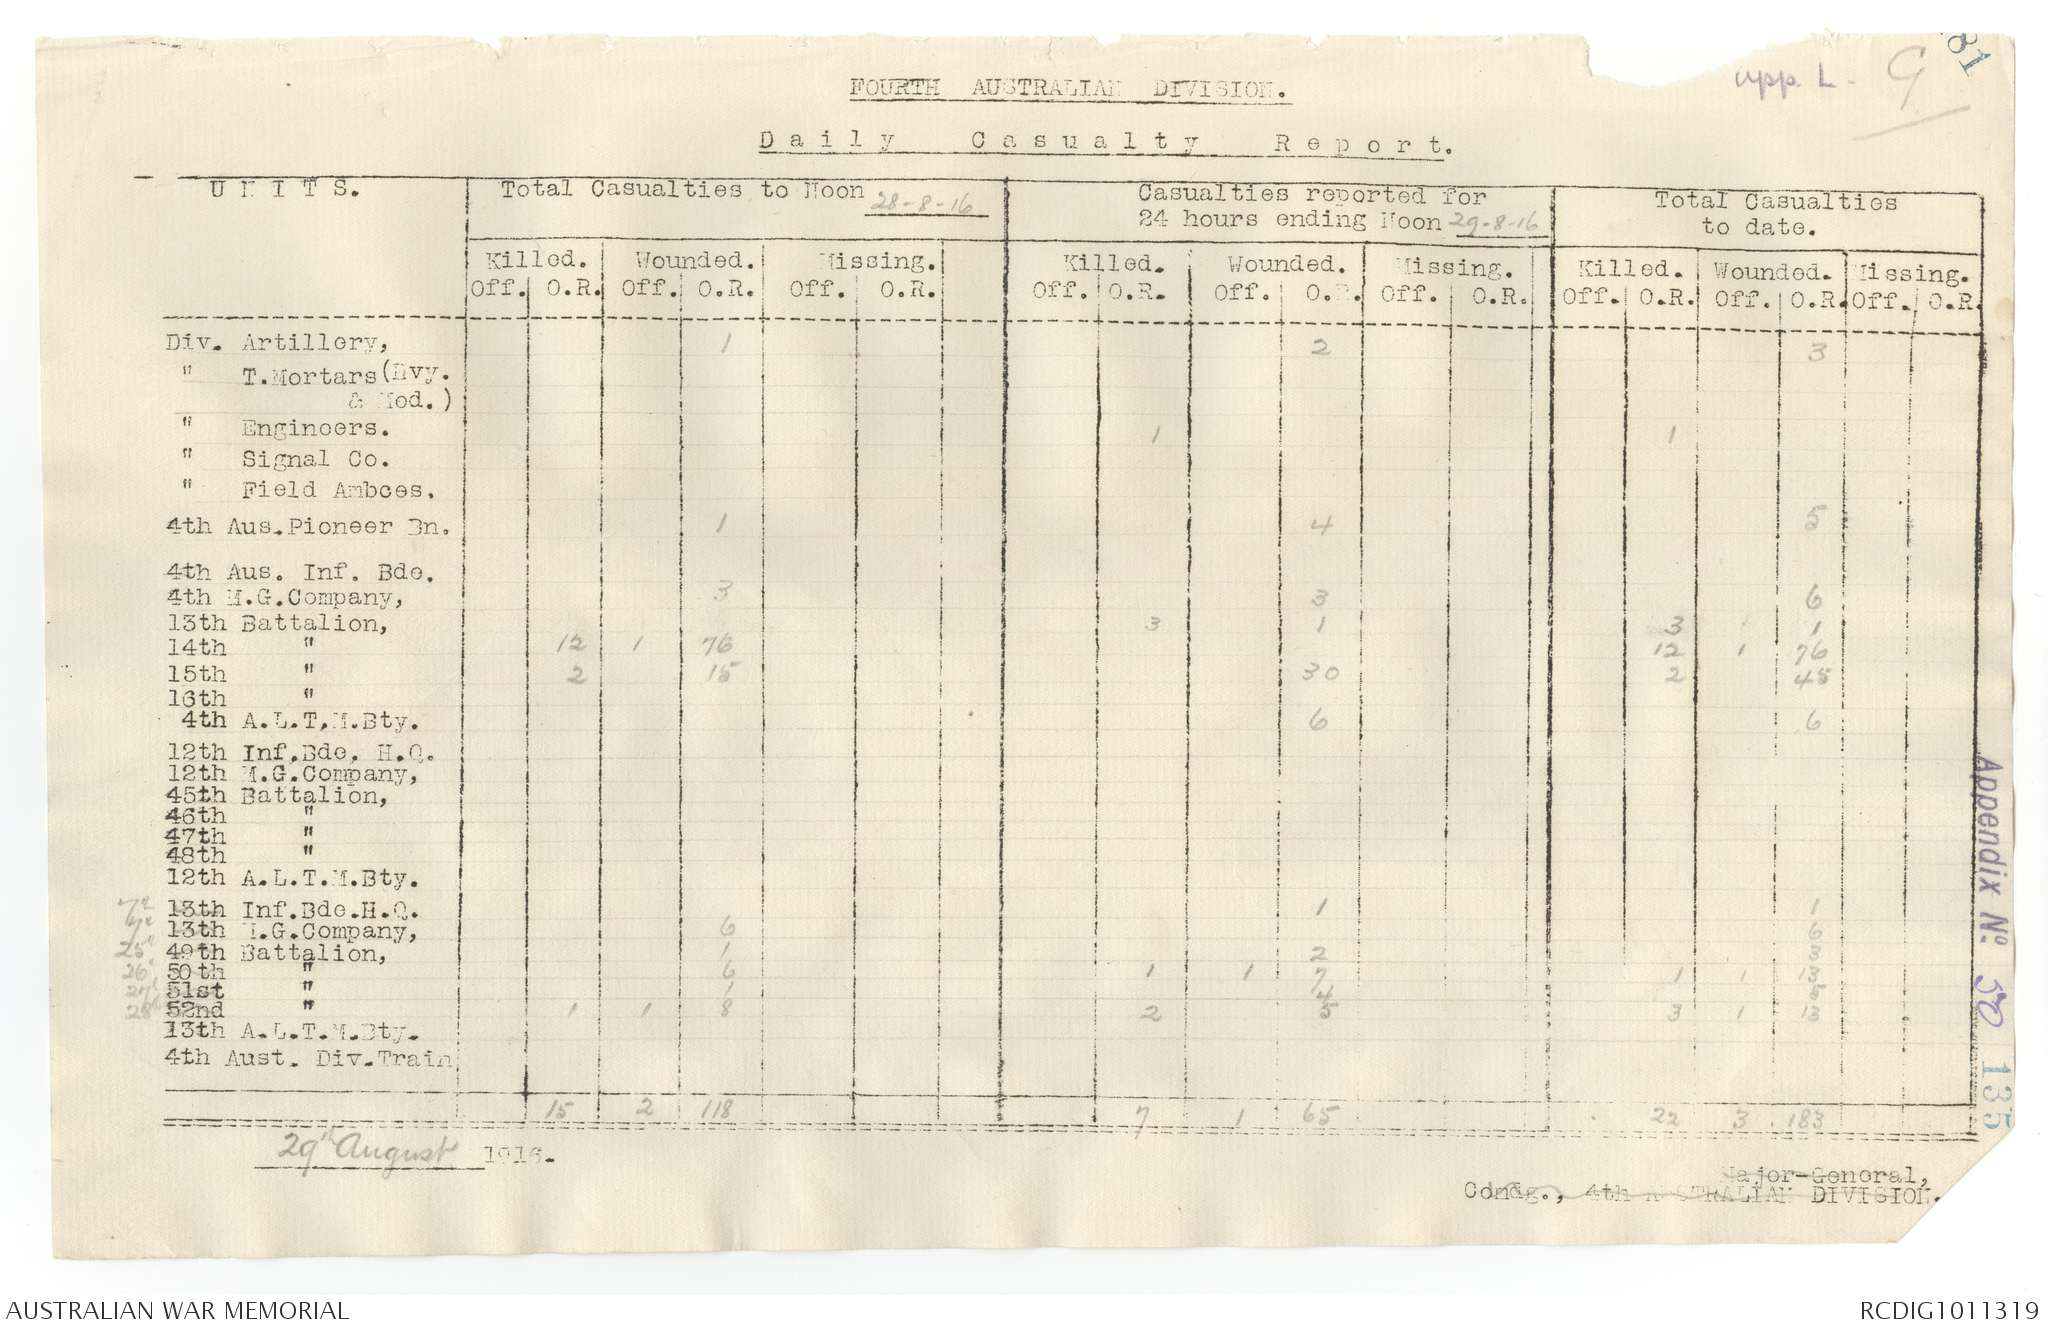 81
app. L. G
FOURTH AUSTRALIAN DIVISION.
Daily Casualty Report.
UNITS. Total Casualties to Noon 28-8-16 Casualties reported for 24 hours ending Noon 29-8-16 Total Casualties to date.
Killed. Wounded. Missing. Killed. Wounded. Missing. Killed. Wounded. Missing.
Off. O.R. Off. O.R. Off. O.R. Off. O.R. Off. O.R. Off. O.R. Off. O.R. Off. O.R. Off. O.R.
Div. Artillery, 1 2 3
" T.Mortars(Hvy.
& Med.)
" Engineers. 1 1
" Signal Co.
" Field Ambces.
4th Aus.Pioneer Bn. 1 4 5
4th Aus. Inf. Bde.
4th M.G.Company, 3 3 6
13th Battalion, 3 1 3 1
14th " 12 1 76 12 1 76
15th " 2 15 30 2 45
16th "
4th A.L.T.M.Bty. 6 6
12th Inf.Bde. H.Q.
12th M.G.Company,
45th Battalion,
46th "
47th "
48th "
12th A.L.T.M.Bty.
7th 13th Inf.Bde.H.Q. 1 1
7th 13th M.G.Company, 6 6
25th 49th Battalion, 1 2 3
26th 50th " 6 1 1 7 1 1 13
27th 51st " 1 4 5
28th 52nd " 1 1 8 2 5 3 1 13
13th A.L.T.M.Bty.
4th Aust. Div.Train
15 2 118 7 1 65 22 3 183
29th August 1916.
Major-General,
Comdg., 4th AUSTRALIAN DIVISION.
Appendix No. 50
135
AUSTRALIAN WAR MEMORIAL
RCDIG1011319